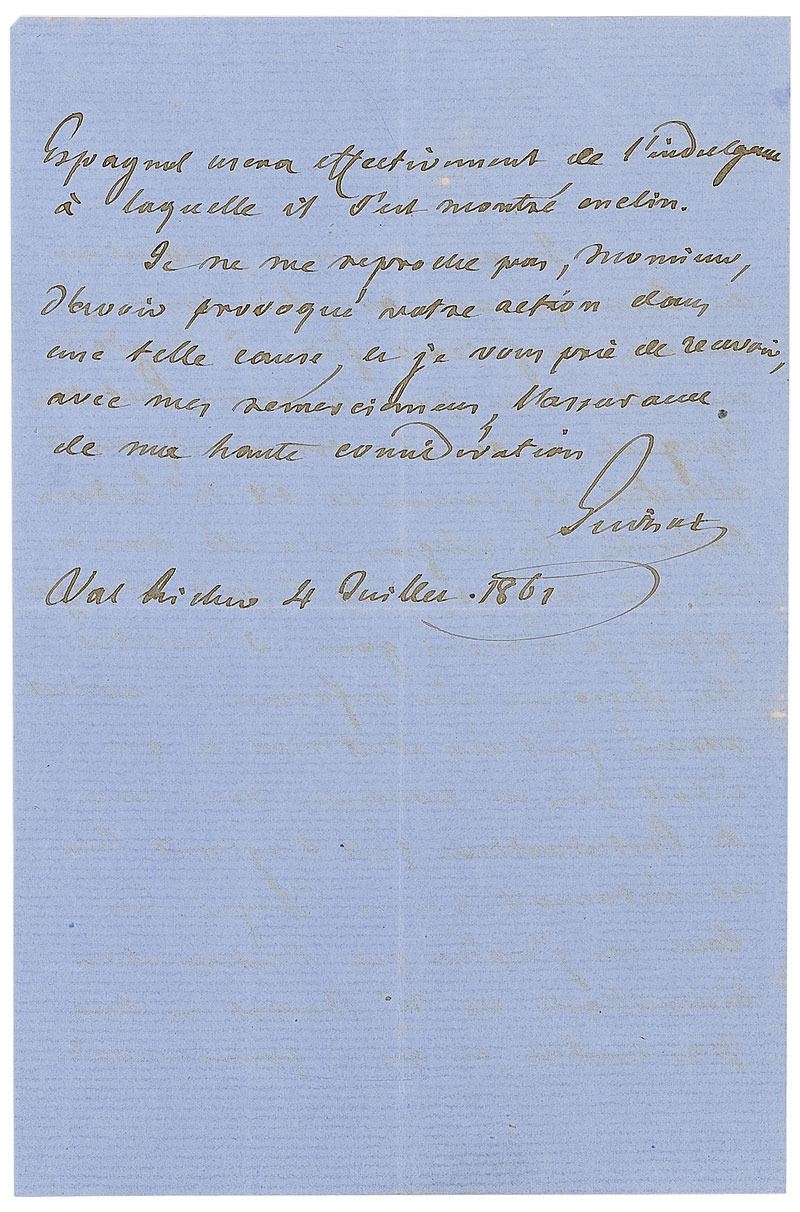 Espagnol usera effectivement de l'indulgence
à laquelle il s'est montré enclin.
Je ne me reproche pas, Monsieur,
d'avoir provoqué votre action dans
une telle cause, et je vous prie de recevoir,
avec mes remerciemens, l'assurance
de ma haute considération
Guizot
Val Richer 4 Juillet . 1861